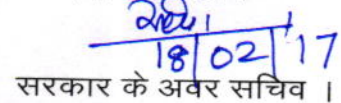 18/02/17
सरकार के अवर सचिव ।